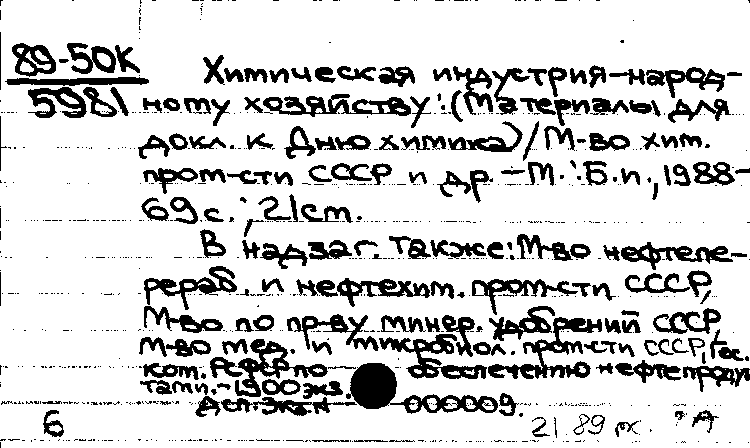 89-50К
5981
Химическая индустрия-народ-
ному хозяйству: (Материалы для
докл. к Дню химика)/М-во хим.
пром-сти СССР и др.-М.: Б.и., 1988-
69с.; 21см.
В надзаг. также: М-во нефтепе-
рераб. и нефтехим. пром-сти СССР,
М-во по пр-ву минер. удобрений СССР,
М-во мед. и микробиол. пром-сти СССР, Гос.
ком. РСФСР по обеспечению нефтепродук
тами.-1900 экз.
Деп. экз. N 000009.
6 21.89